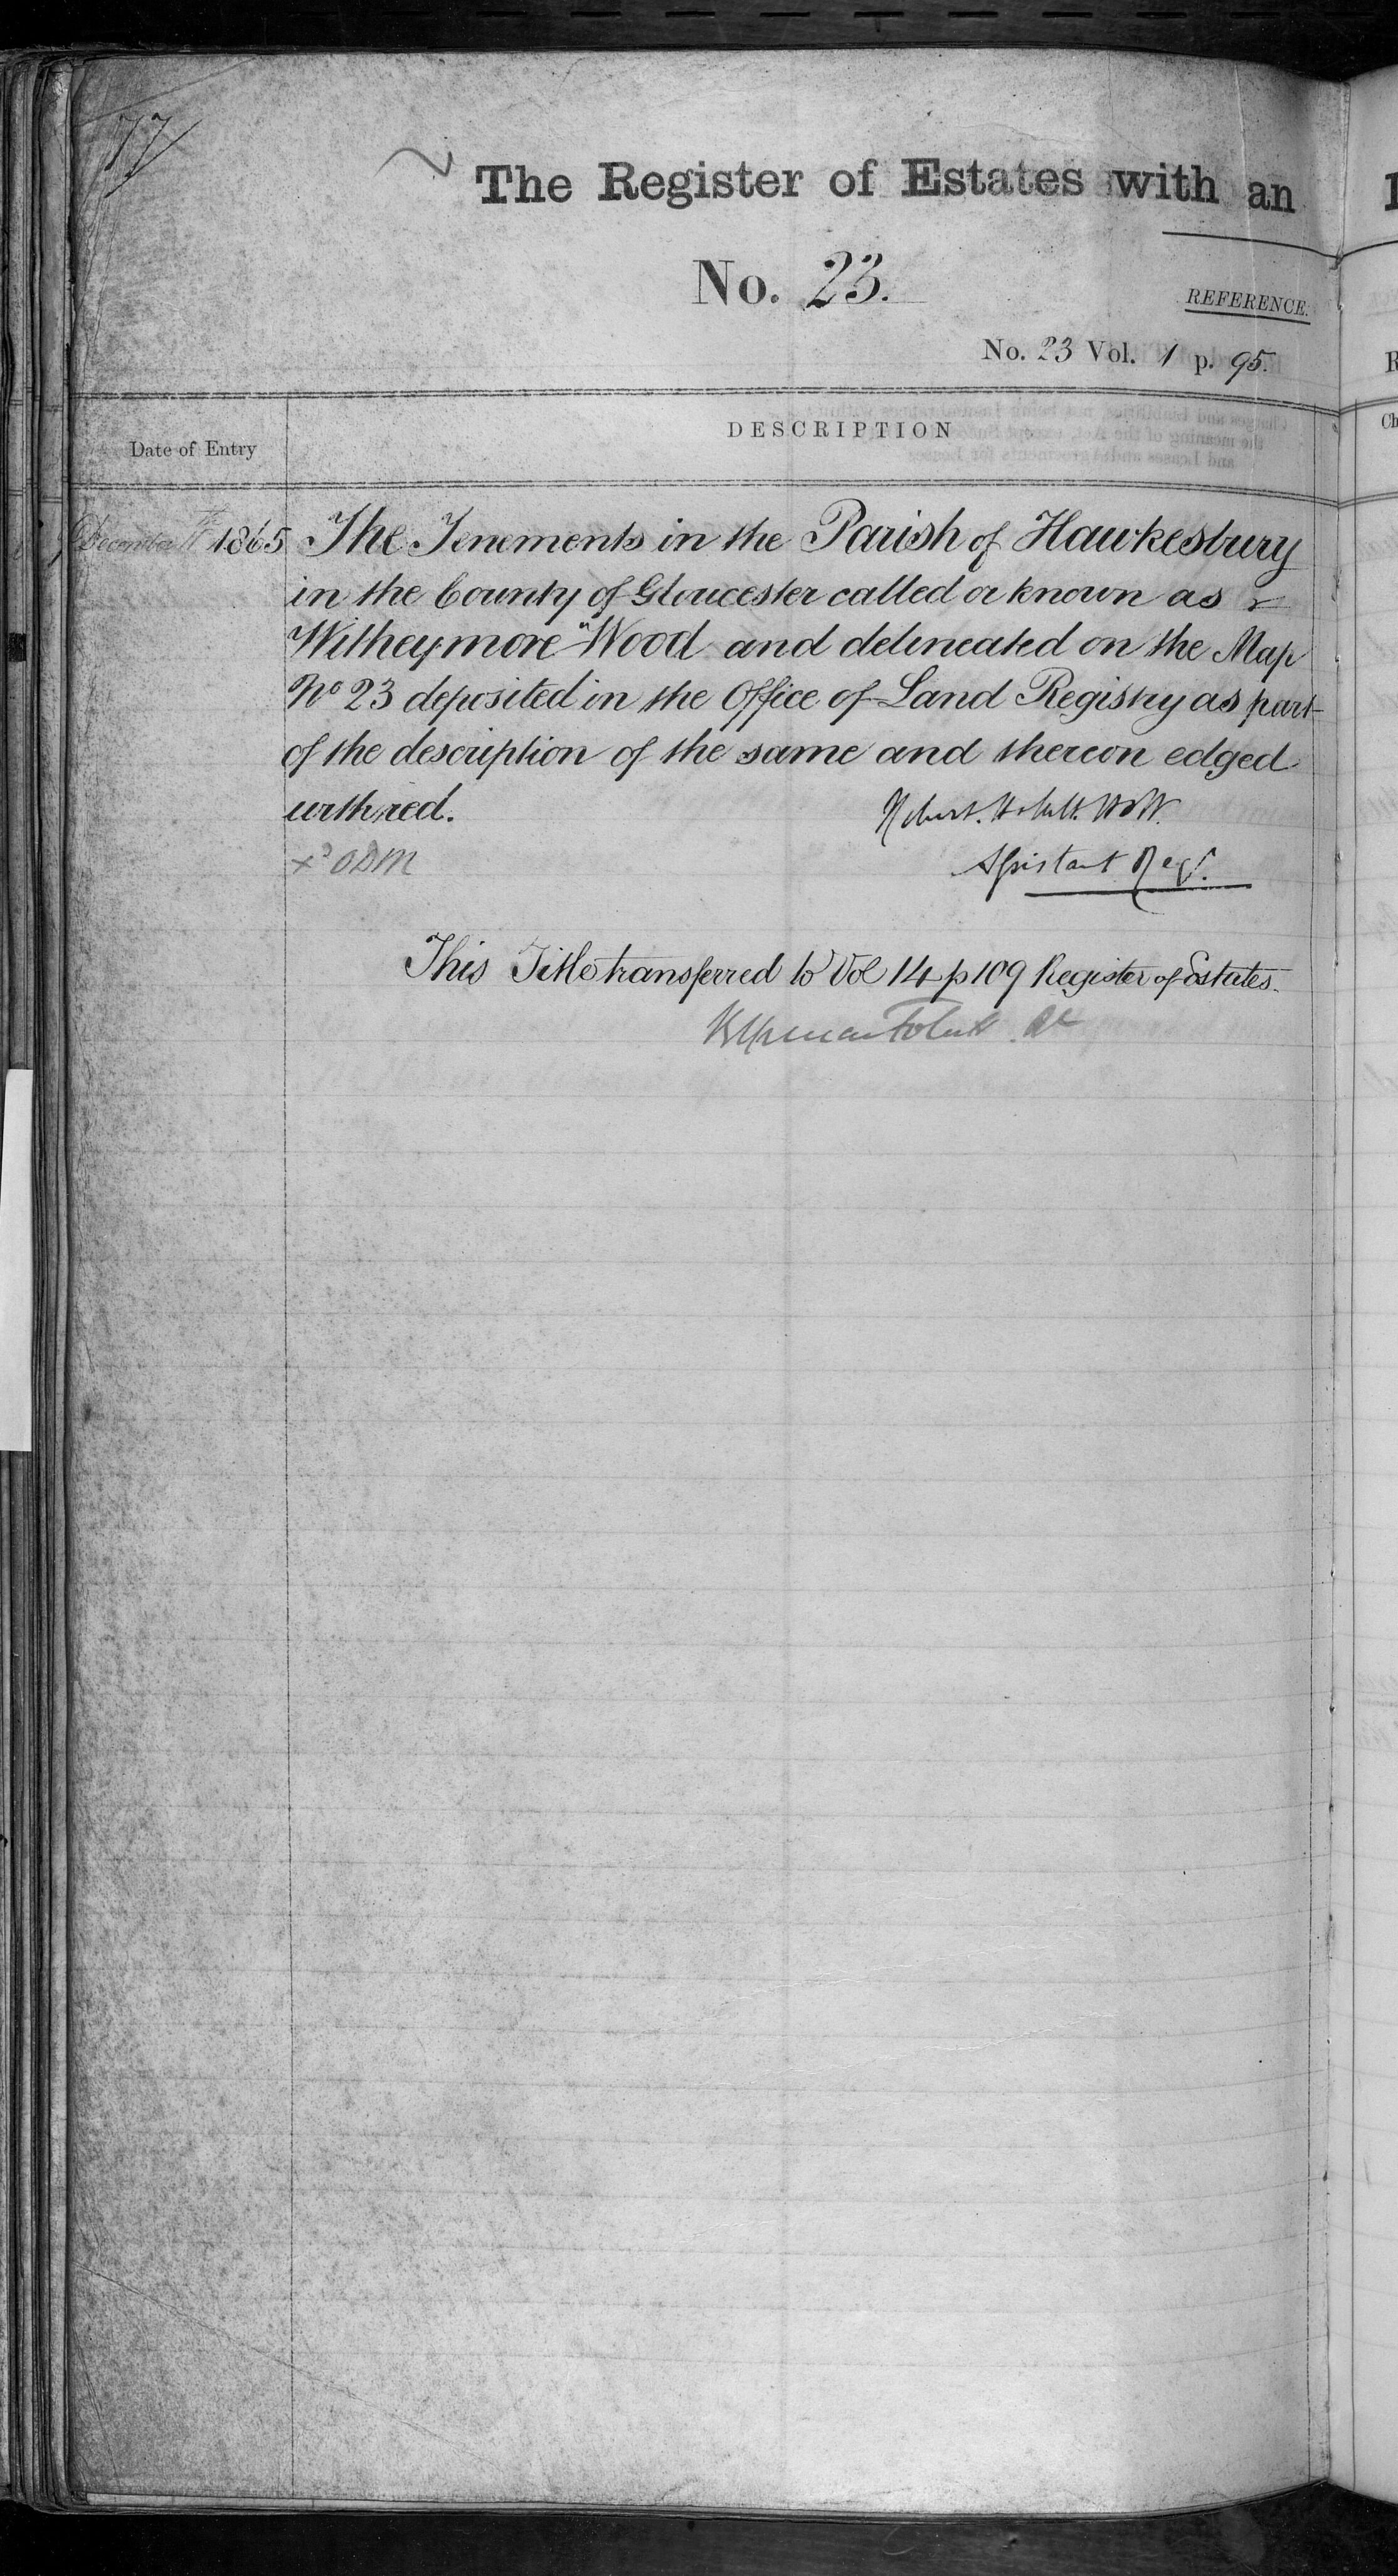 77
The Register of Estates with an
No. 23.
REFERENCE.
No. 23 Vol. 1 p. 95.
DESCRIPTION
Date of Entry
December 1865
The Tenements in the Parish of Hawkesbury
in the County of Gloucester called or known as
Witheymore Wood and delineated on the Map
No 23 deposited in the Office of Land Registry as part
of the description of the same and thereon edged
with red.
Robert Hallett Holt
Assistant Regr.
This Title transferred to Vol 14 p 109 Register of Estates.